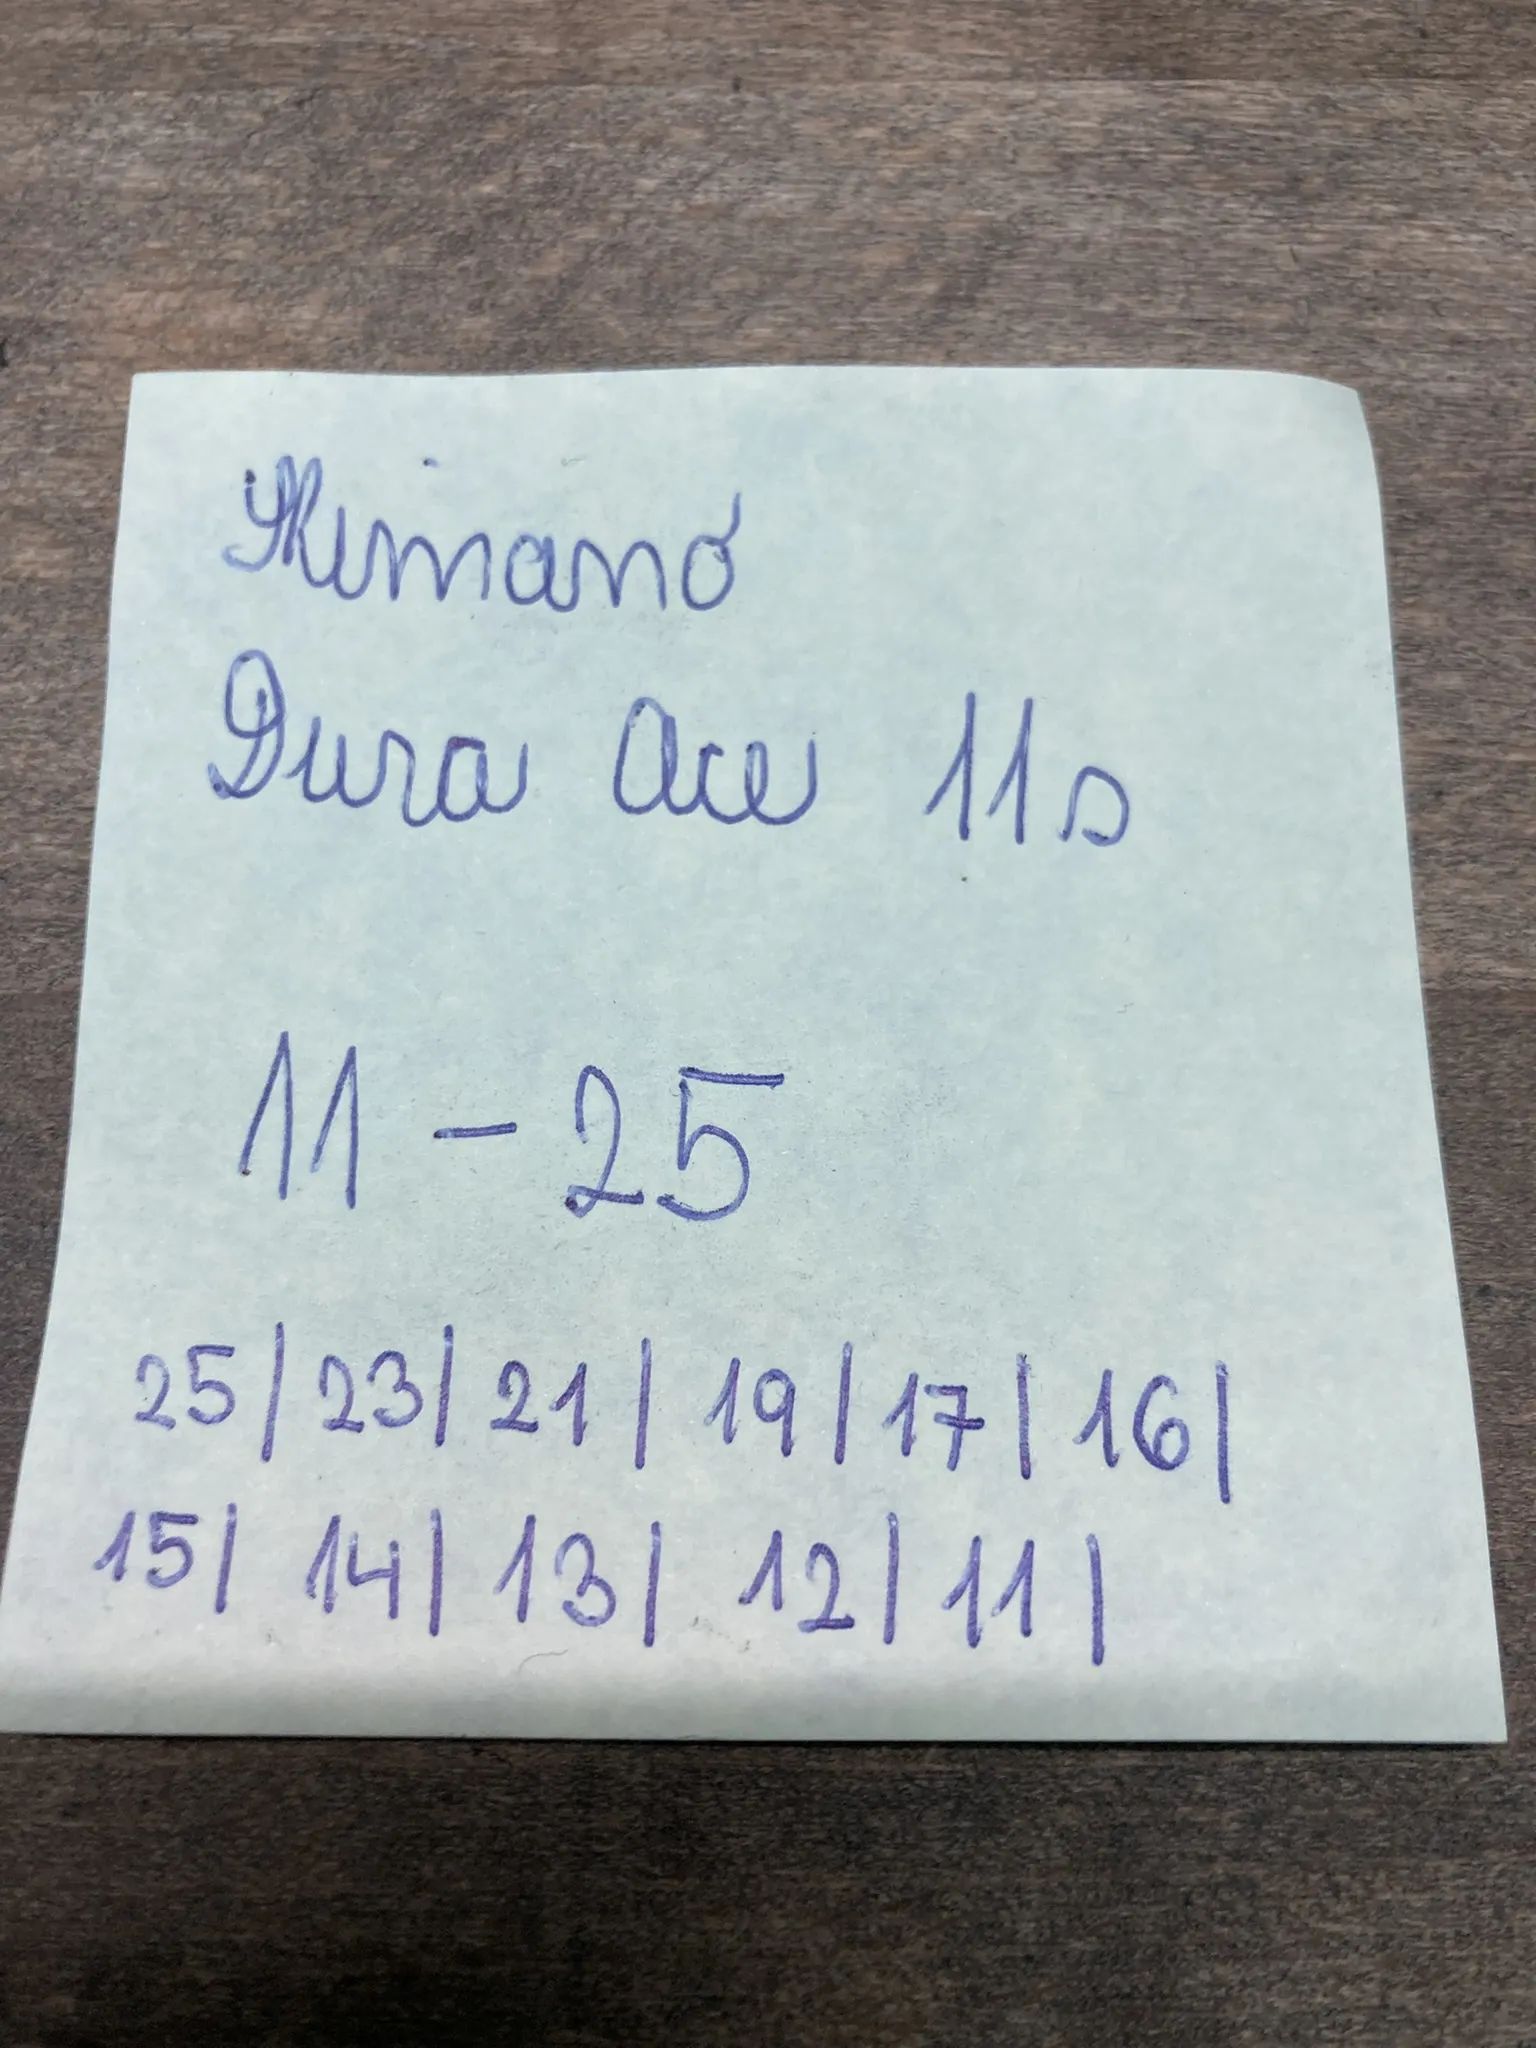 Shimano
Dura Ace 11s
11 - 25
25/ 23/ 21 / 19 / 17 / 16 /
15/ 14/ 13/ 12/ 11/